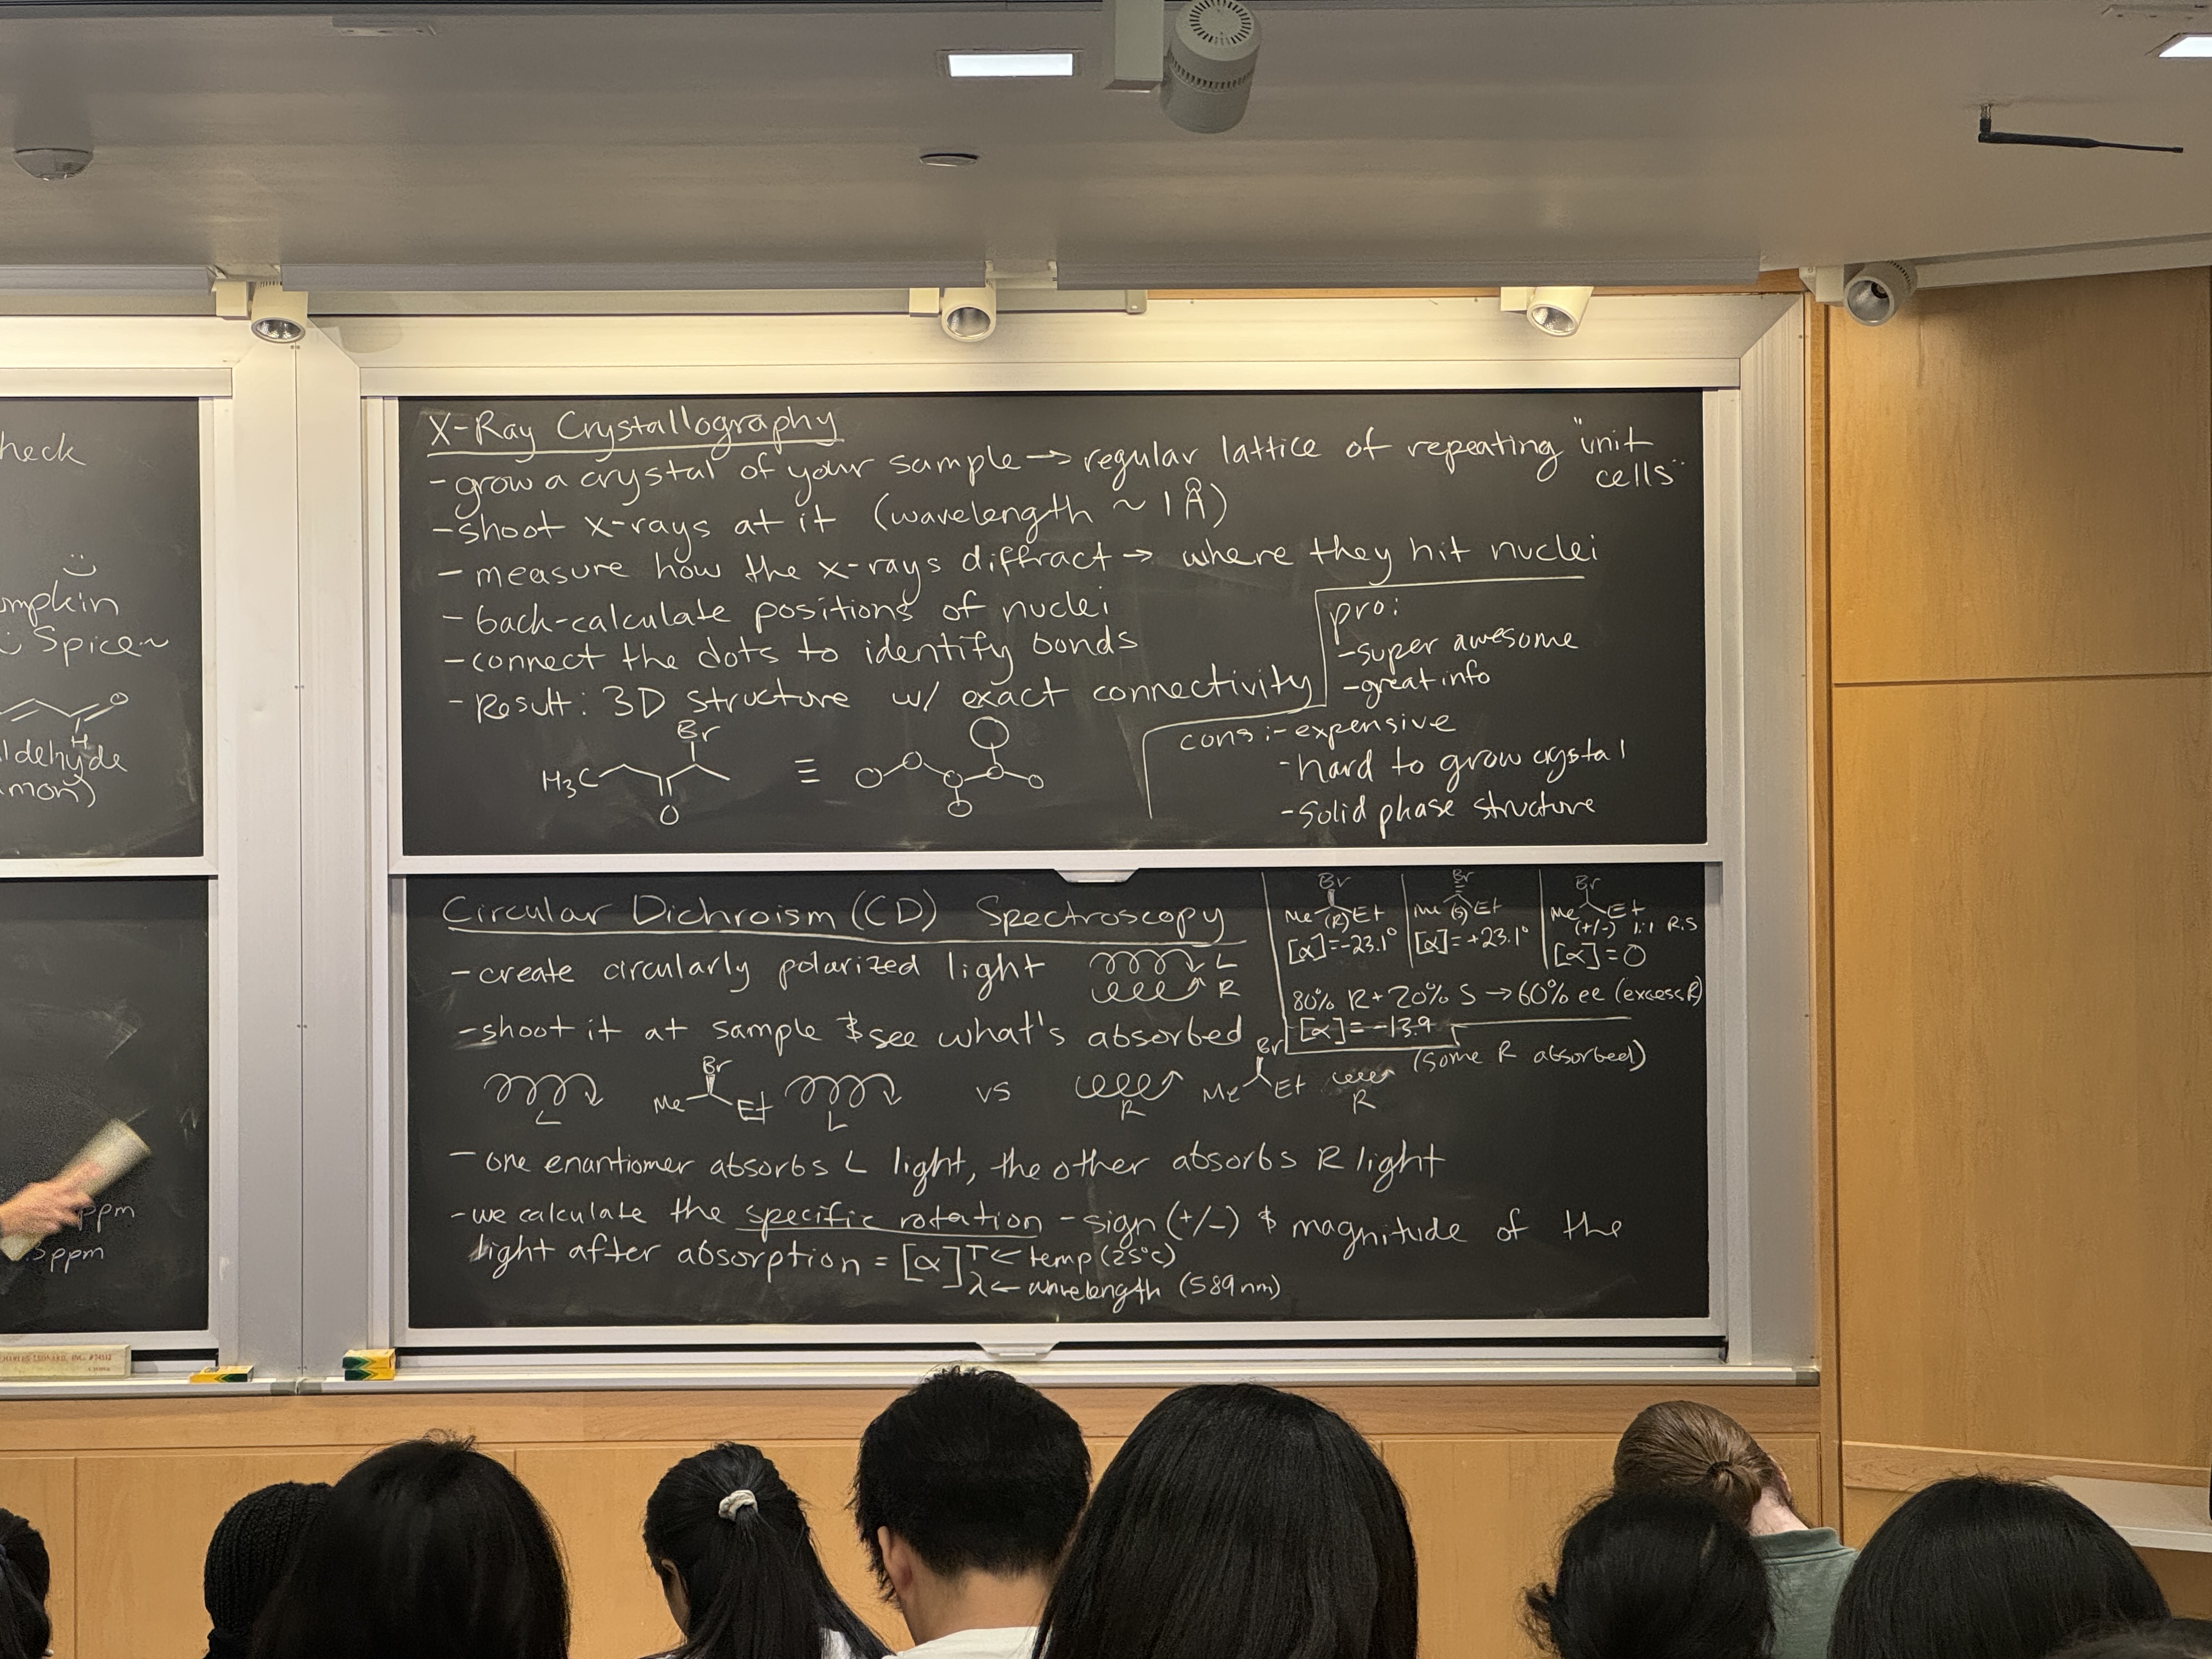 heck
mpkin
Spice~
O
H
ldehyde
mon)
ppm
5ppm
X-Ray Crystallography
- grow a crystal of your sample → regular lattice of repeating "unit
cells"
- shoot x-rays at it (wavelength ~ 1 Å)
- measure how the x-rays diffract → where they hit nuclei
- back-calculate positions of nuclei
- connect the dots to identify bonds
- Result: 3D structure w/ exact connectivity
Br
H3C
O
≡
pro:
- super awesome
- great info
cons: - expensive
- hard to grow crystal
- solid phase structure
Circular Dichroism (CD) Spectroscopy
- create circularly polarized light
L
R
- shoot it at sample & see what's absorbed
Br
Me Et
L
L
vs
R
Br
Me Et
R
(some R absorbed)
- one enantiomer absorbs L light, the other absorbs R light
- we calculate the specific rotation - sign (+/-) & magnitude of the
light after absorption = [α] T ← temp (25°C)
λ ← wavelength (589nm)
Br
Me (R) Et
[α]=-23.1°
Br
Me (S) Et
[α]=+23.1°
Br
Me Et
(+/-) 1:1 R:S
[α]=0
80% R + 20% S → 60% ee (excess R)
[α]=-13.9